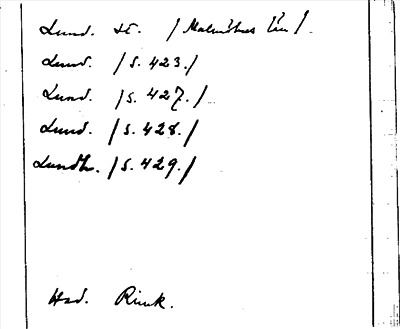 Lund. st. /Malmöhus län/.
Lund. /S. 423./
Lund. /S. 427./
Lund. /S. 428./
Lundh. /S. 429./
Had. Rink.